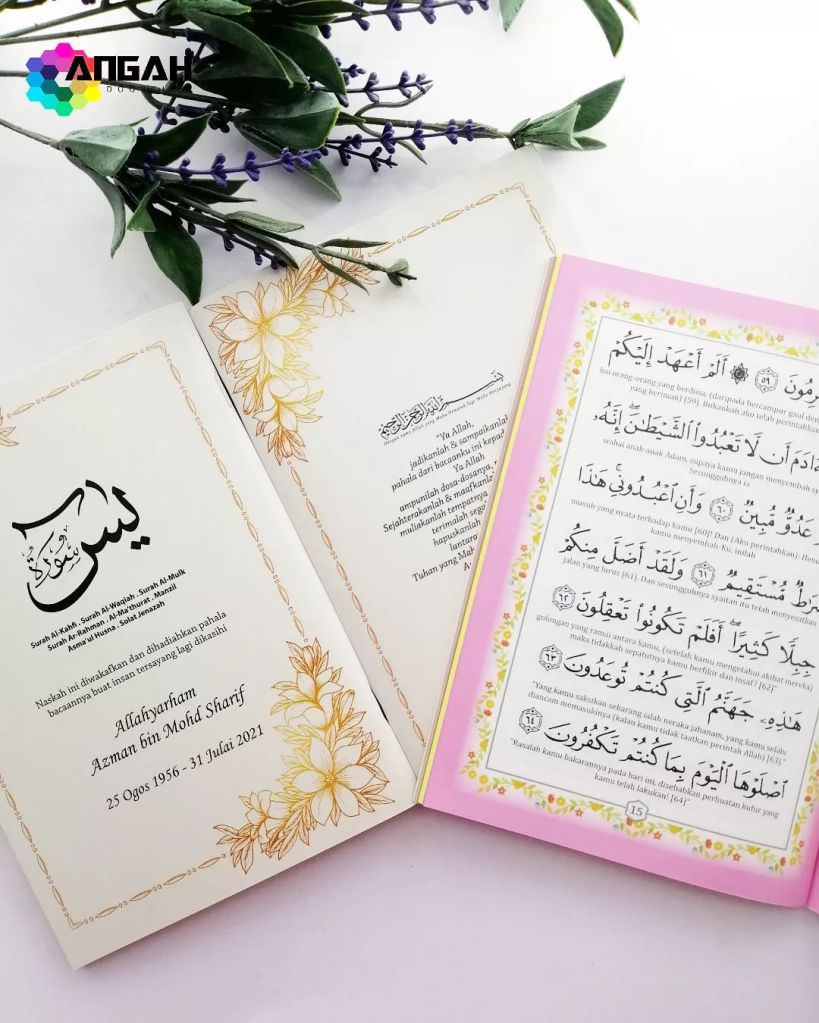 ANGAH
يس
سورة
Surah Al-Kahfi . Surah Al-Waqiah . Surah Al-Mulk
Surah Ar-Rahman . Al-Ma'thurat . Manzil
Asma'ul Husna . Solat Jenazah
Naskah ini diwakafkan dan dihadiahkan pahala
bacaannya buat insan tersayang lagi dikasihi
Allahyarham
Azman bin Mohd Sharif
25 Ogos 1956 - 31 Julai 2021
بسم الله الرحمن الرحيم
Dengan nama Allah yang Maha Pemurah lagi Maha Penyayang
"Ya Allah,
jadikanlah & sampaikanlah
pahala dari bacaanku ini kepada
Ya Allah
ampunilah dosa-dosanya,
Sejahterakanlah & maafkanlah
muliakanlah tempatnya
terimalah
hapuskanlah
Tuhan yang
۞ أَلَمْ أَعْهَدْ إِلَيْكُمْ ٥٩
hai orang-orang yang berdosa, (daripada bercampur gaul
yang beriman) [59]. Bukankah aku telah perintahkan
ءَادَمَ أَن لَّا تَعْبُدُوا۟ ٱلشَّيْطَـٰنَ ۖ إِنَّهُۥ
wahai anak-anak Adam, supaya kamu jangan menyembah
Sesungguhnya ia
عَدُوٌّ مُّبِينٌ ٦٠ وَأَنِ ٱعْبُدُونِى ۚ هَـٰذَا
musuh yang nyata terhadap kamu [60]! Dan (Aku perintahkan):
kamu menyembah-Ku, inilah
مُّسْتَقِيمٌ ٦١ وَلَقَدْ أَضَلَّ مِنكُمْ
jalan yang lurus [61]. Dan sesungguhnya syaitan itu telah menyesatkan
جِبِلًّا كَثِيرًا ۖ أَفَلَمْ تَكُونُوا۟ تَعْقِلُونَ ٦٢
golongan yang ramai antara kamu, (setelah kamu mengetahui akibat mereka)
maka tidakkah sepatutnya kamu berfikir dan insaf? [62]"
هَـٰذِهِۦ جَهَنَّمُ ٱلَّتِى كُنتُمْ تُوعَدُونَ ٦٣
"Yang kamu saksikan sekarang ialah neraka jahanam, yang kamu selalu
diancam memasukinya (kalau kamu tidak taatkan perintah Allah) [63]."
ٱصْلَوْهَا ٱلْيَوْمَ بِمَا كُنتُمْ تَكْفُرُونَ ٦٤
"Rasalah kamu bakarannya pada hari ini, disebabkan perbuatan kufur yang
kamu telah lakukan! [64]"
15